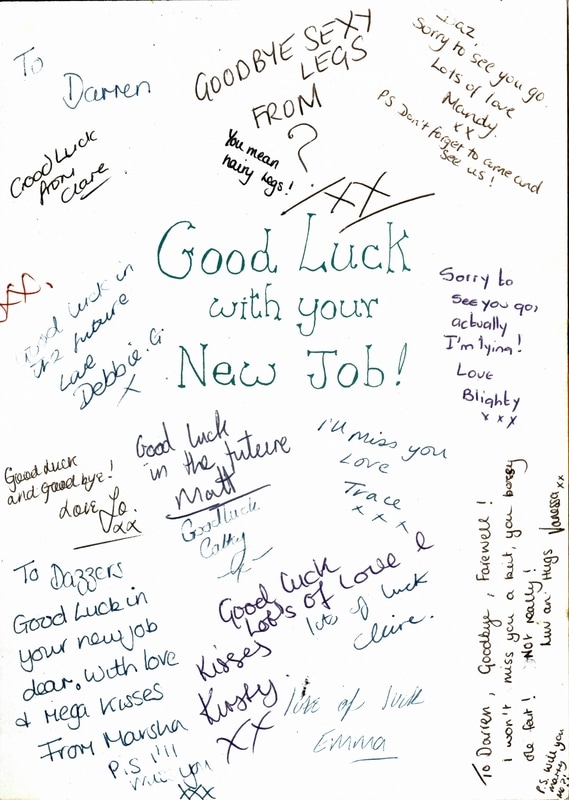 To
Darren
GOODBYE SEXY
LEGS
FROM
?
You mean
hairy legs!
XX
Daz,
Sorry to see you go
Lots of love
Mandy.
xx
P.S Don't forget to come and
see us!
Good Luck
from
Clare
Good Luck
with your
New Job!
XX.
Good luck in
the future
Love
Debbie.G.
X
Sorry to
see you go,
actually
I'm lying!
Love
Blighty
x x x
Good Luck
and Goodbye!
Love Jo.
xx
Good luck
in the future
Matt
Goodluck
Cathy
I'll miss you
Love
Trace
x x x
To Dazzers
Good Luck in
your new job
dear. With love
& Mega Kisses
From Marsha
P.S I'll
miss you
xxx
Good Luck
Lots of Love &
Kisses
Kirsty.
XX
lots of luck
Claire.
love of luck
Emma
To Darren, Goodbye, Farewell!
I won't miss you a bit, you bossy
old fart! Not really!
Luv an' Hugs Vanessa xx
P.S. will you
marry
me?!